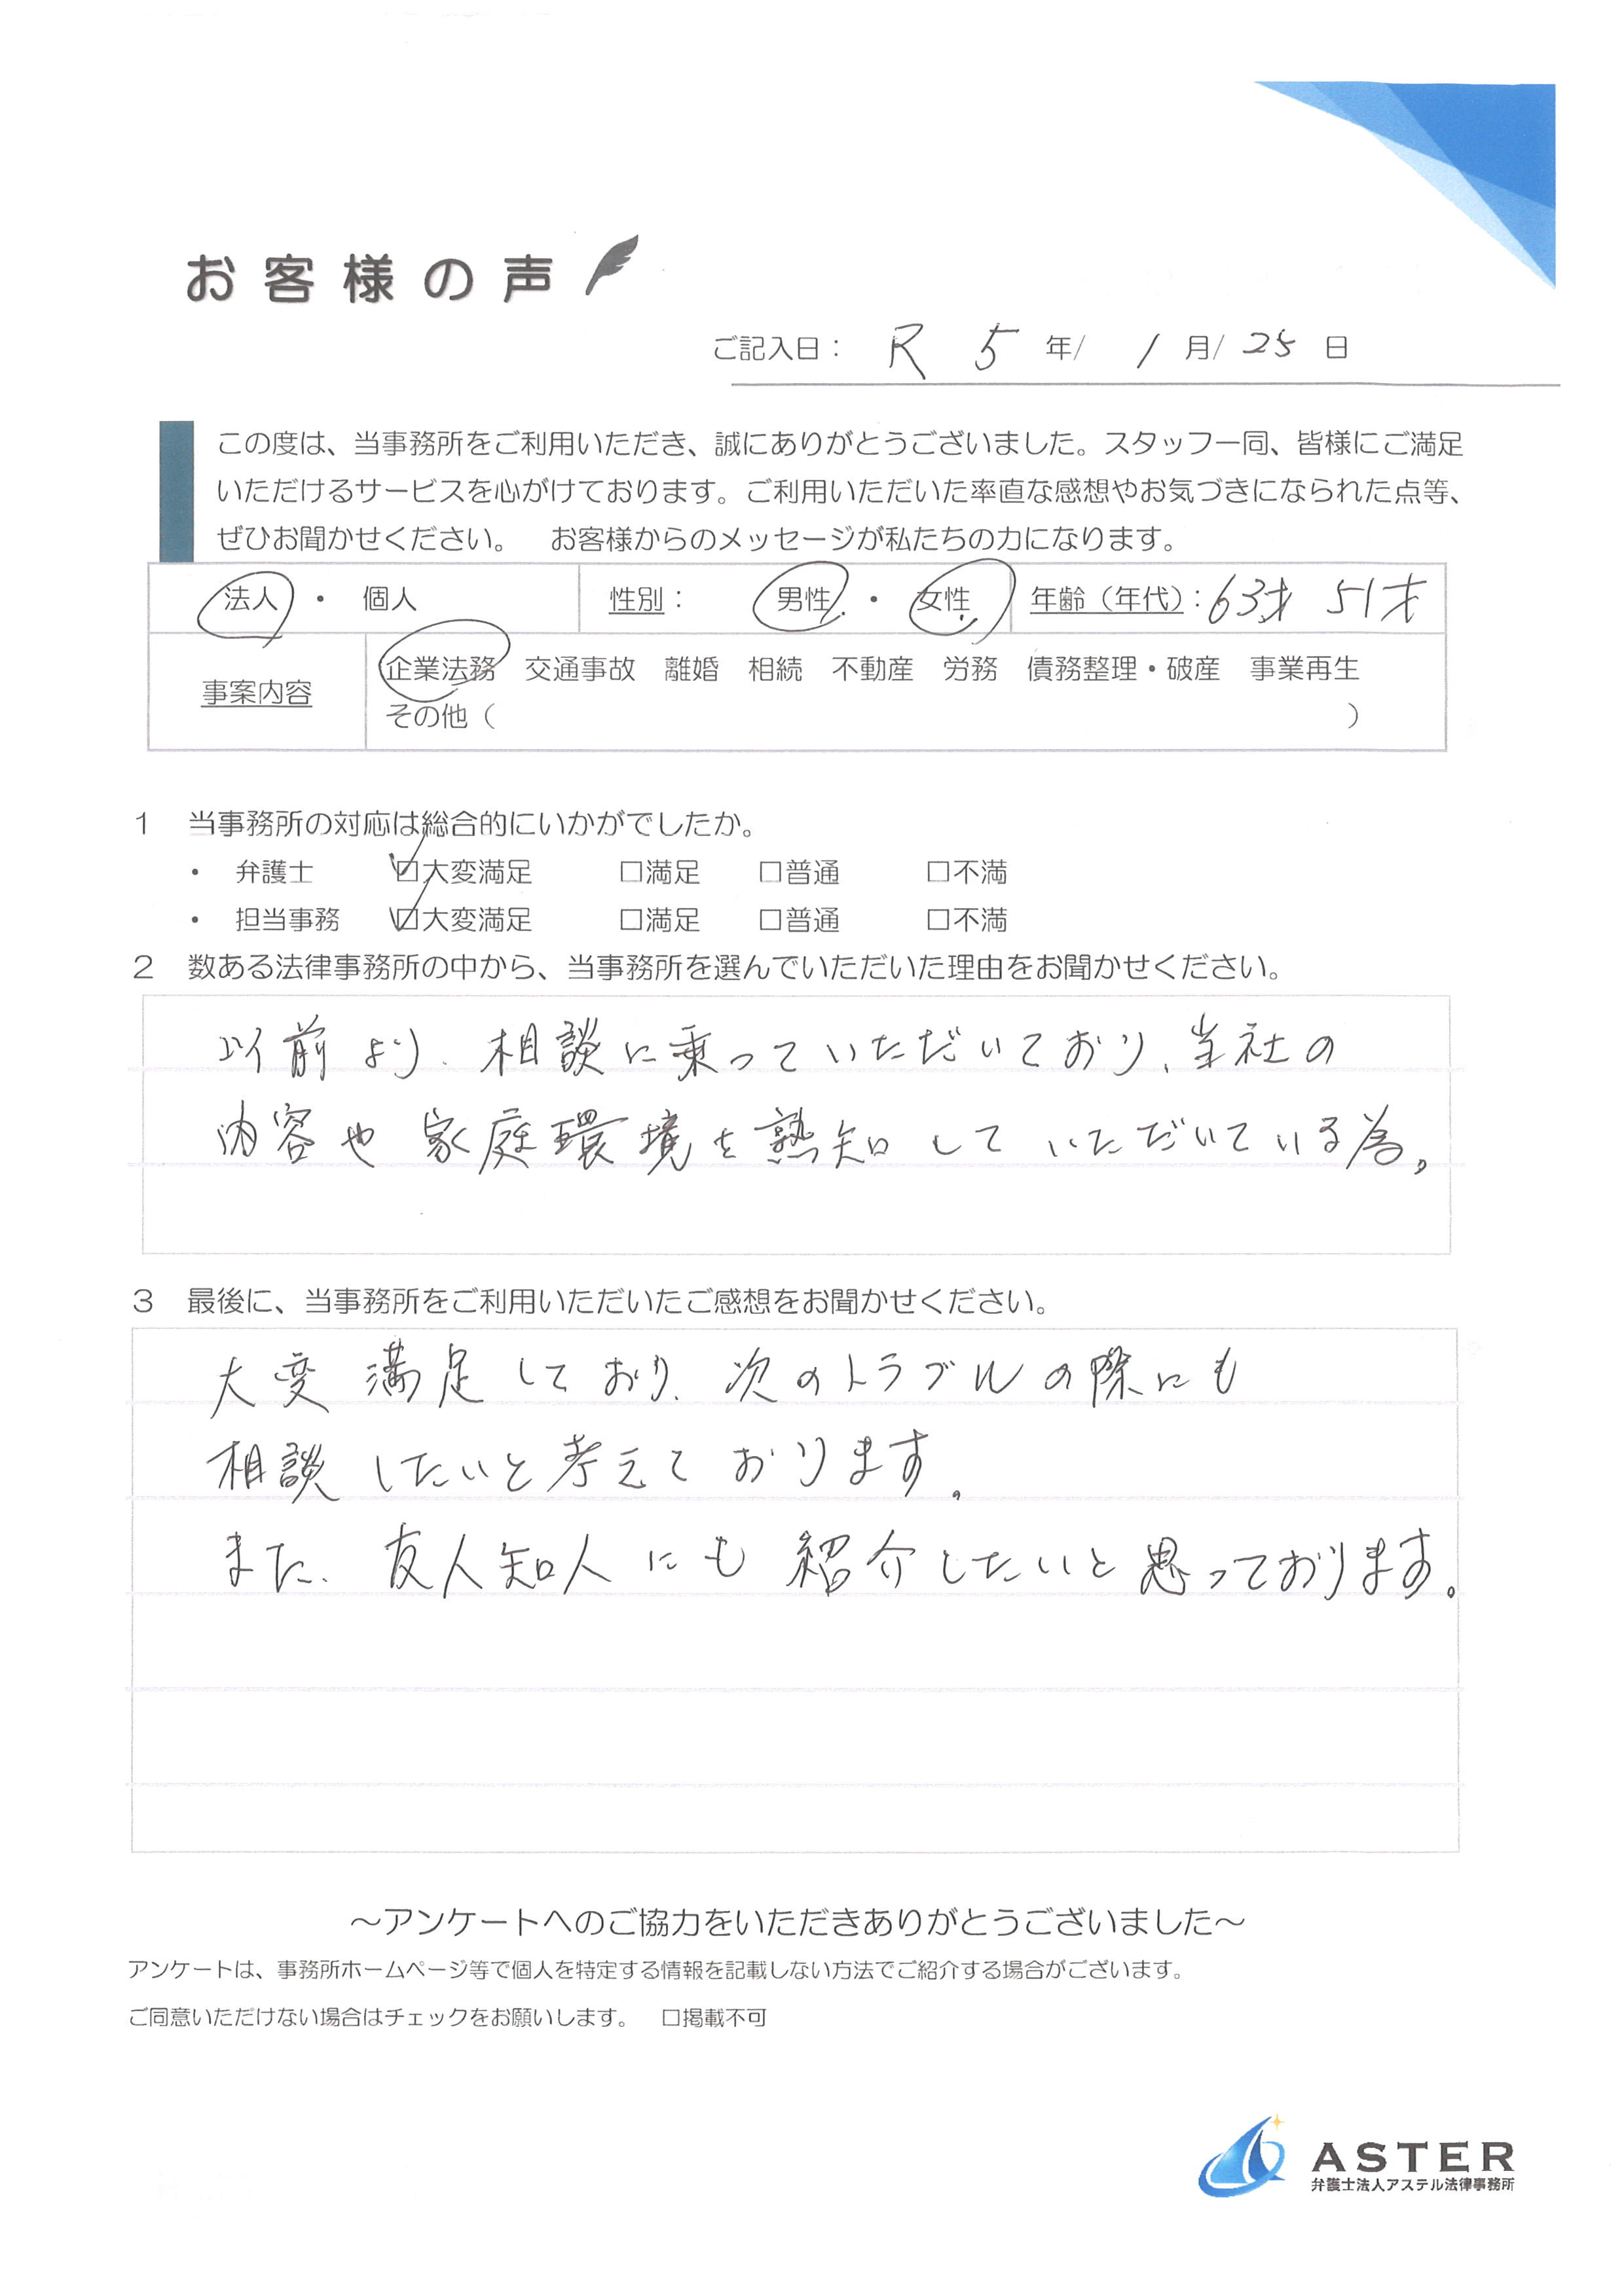 お客様の声
ご記入日： R 5 年/ 1 月/ 25 日
この度は、当事務所をご利用いただき、誠にありがとうございました。スタッフ一同、皆様にご満足
いただけるサービスを心がけております。ご利用いただいた率直な感想やお気づきになられた点等、
ぜひお聞かせください。　お客様からのメッセージが私たちの力になります。
法人 ・ 個人 性別： 男性 ・ 女性 年齢（年代）：63才 51才
事案内容 企業法務 交通事故 離婚 相続 不動産 労務 債務整理・破産 事業再生
その他（ ）
1 当事務所の対応は総合的にいかがでしたか。
・ 弁護士 ☑大変満足 □満足 □普通 □不満
・ 担当事務 ☑大変満足 □満足 □普通 □不満
2 数ある法律事務所の中から、当事務所を選んでいただいた理由をお聞かせください。
以前より、相談に乗っていただいており、当社の
内容や家庭環境を熟知していただいている為。
3 最後に、当事務所をご利用いただいたご感想をお聞かせください。
大変満足しており、次のトラブルの際にも
相談したいと考えております。
また、友人知人にも紹介したいと思っております。
～アンケートへのご協力をいただきありがとうございました～
アンケートは、事務所ホームページ等で個人を特定する情報を記載しない方法でご紹介する場合がございます。
ご同意いただけない場合はチェックをお願いします。 □掲載不可
ASTER
弁護士法人アステル法律事務所